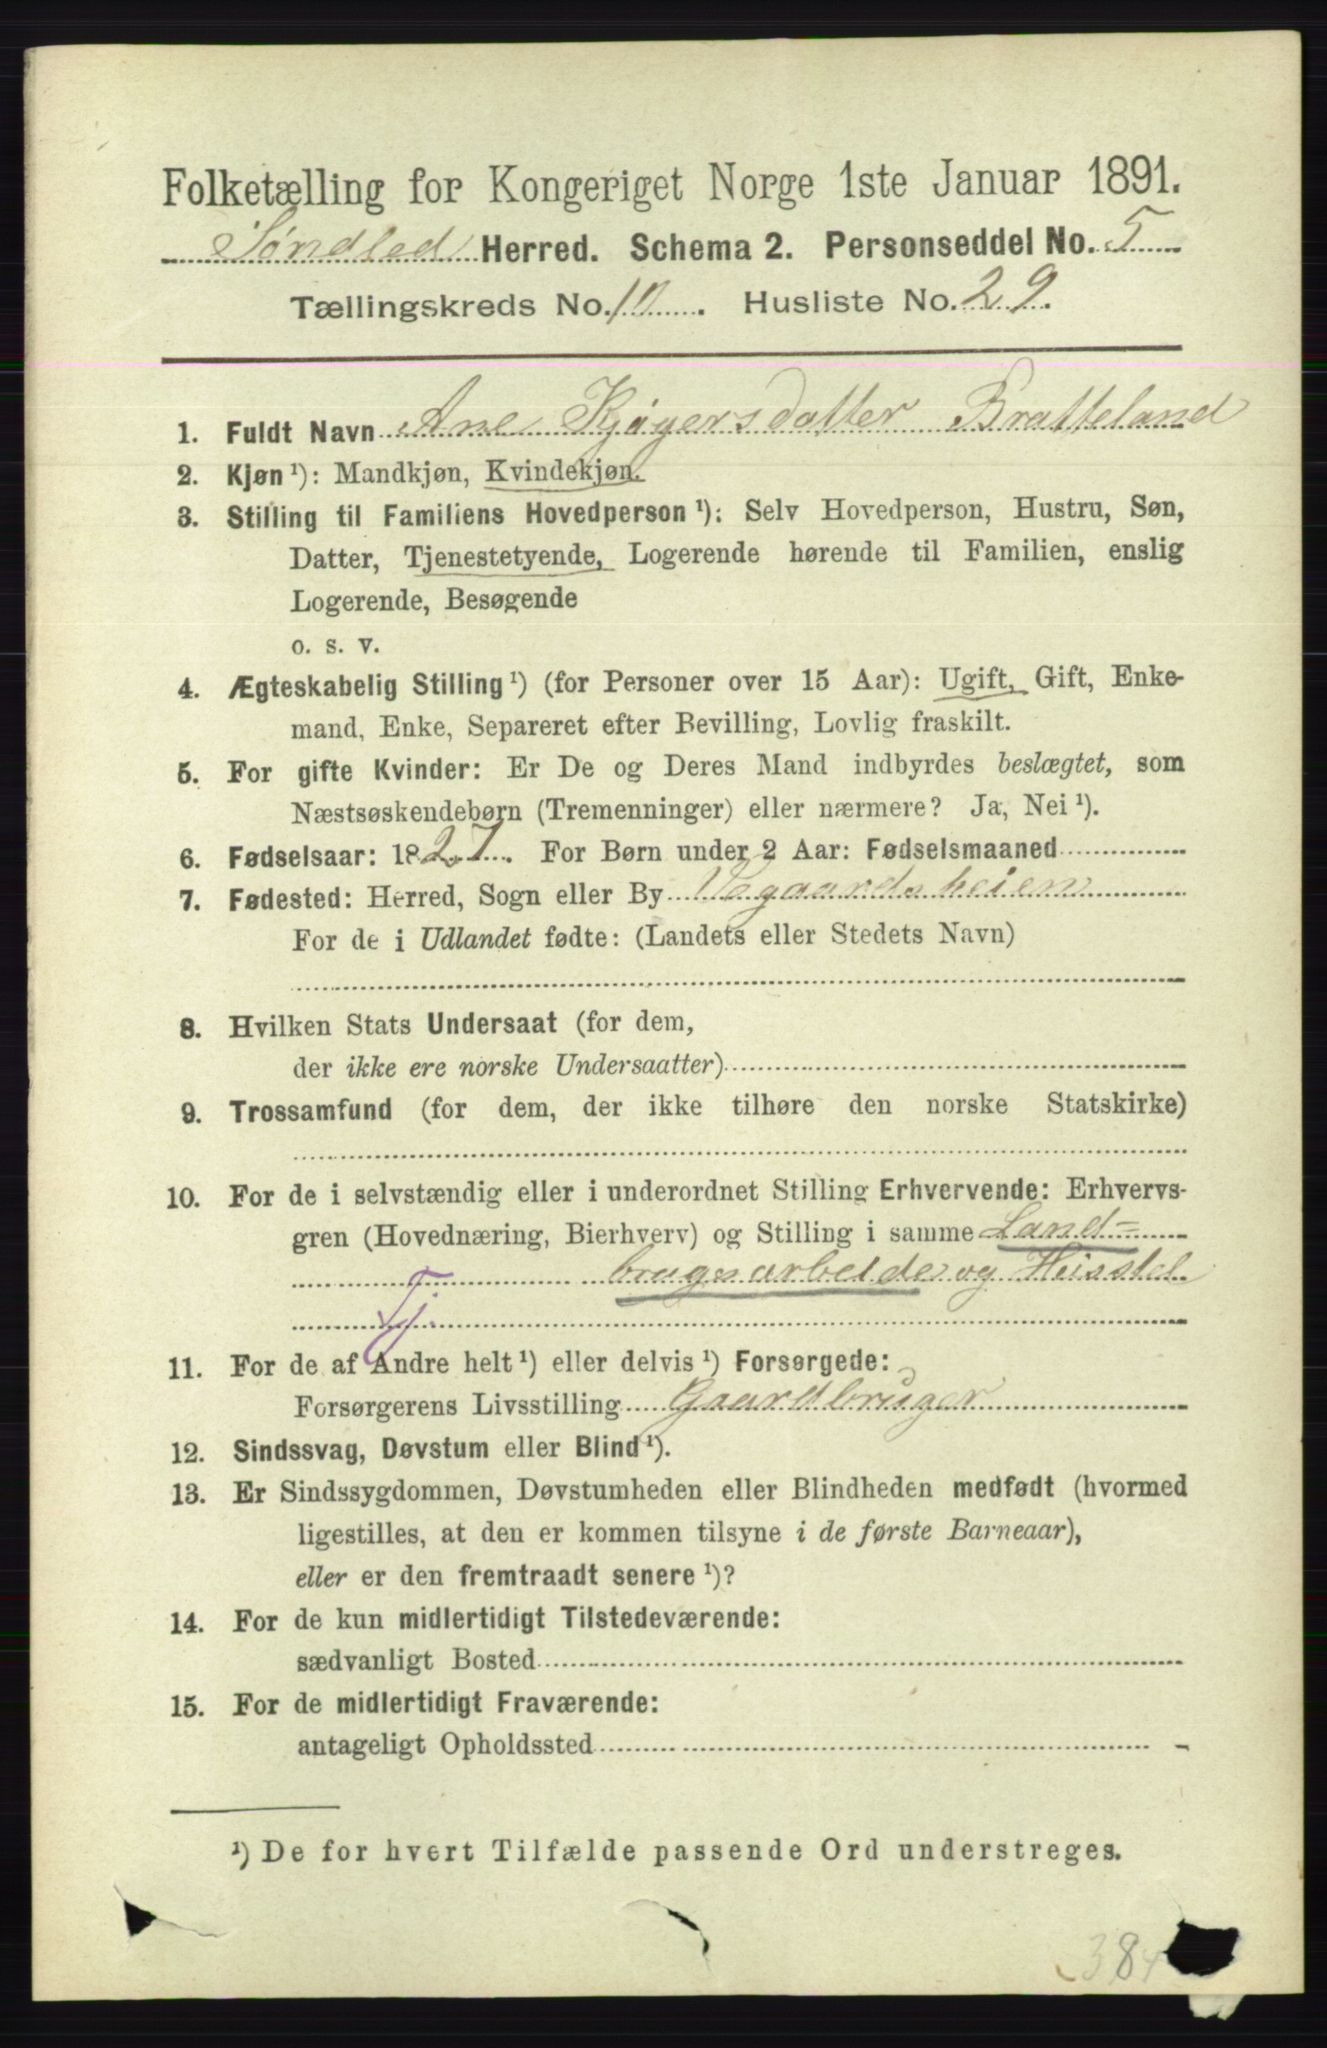 Folketælling for Kongeriget Norge 1ste Januar 1891.
Søndled Herred. Schema 2. Personseddel No. 5
Tællingskreds No. 10. Husliste No. 29.
1. Fuldt Navn Ane Kjøgersdatter Bratteland
2. Kjøn ¹): Mandkjøn, Kvindekjøn.
3. Stilling til Familiens Hovedperson ¹): Selv Hovedperson, Hustru, Søn,
Datter, Tjenestetyende, Logerende hørende til Familien, enslig
Logerende, Besøgende
o. s. v.
4. Ægteskabelig Stilling ¹) (for Personer over 15 Aar): Ugift, Gift, Enke-
mand, Enke, Separeret efter Bevilling, Lovlig fraskilt.
5. For gifte Kvinder: Er De og Deres Mand indbyrdes beslægtet, som
Næstsøskendebørn (Tremenninger) eller nærmere? Ja, Nei ¹).
6. Fødselsaar: 1827. For Børn under 2 Aar: Fødselsmaaned
7. Fødested: Herred, Sogn eller By Vegaardsheien
For de i Udlandet fødte: (Landets eller Stedets Navn)
8. Hvilken Stats Undersaat (for dem,
der ikke ere norske Undersaatter)
9. Trossamfund (for dem, der ikke tilhøre den norske Statskirke)
10. For de i selvstændig eller i underordnet Stilling Erhvervende: Erhvervs-
gren (Hovednæring, Bierhverv) og Stilling i samme Land=
brugsarbeide og Heisstel
Tj.
11. For de af Andre helt ¹) eller delvis ¹) Forsørgede:
Forsørgerens Livsstilling Gaardbruger
12. Sindssvag, Døvstum eller Blind ¹).
13. Er Sindssygdommen, Døvstumheden eller Blindheden medfødt (hvormed
ligestilles, at den er kommen tilsyne i de første Barneaar),
eller er den fremtraadt senere ¹)?
14. For de kun midlertidigt Tilstedeværende:
sædvanligt Bosted
15. For de midlertidigt Fraværende:
antageligt Opholdssted
¹) De for hvert Tilfælde passende Ord understreges.
384